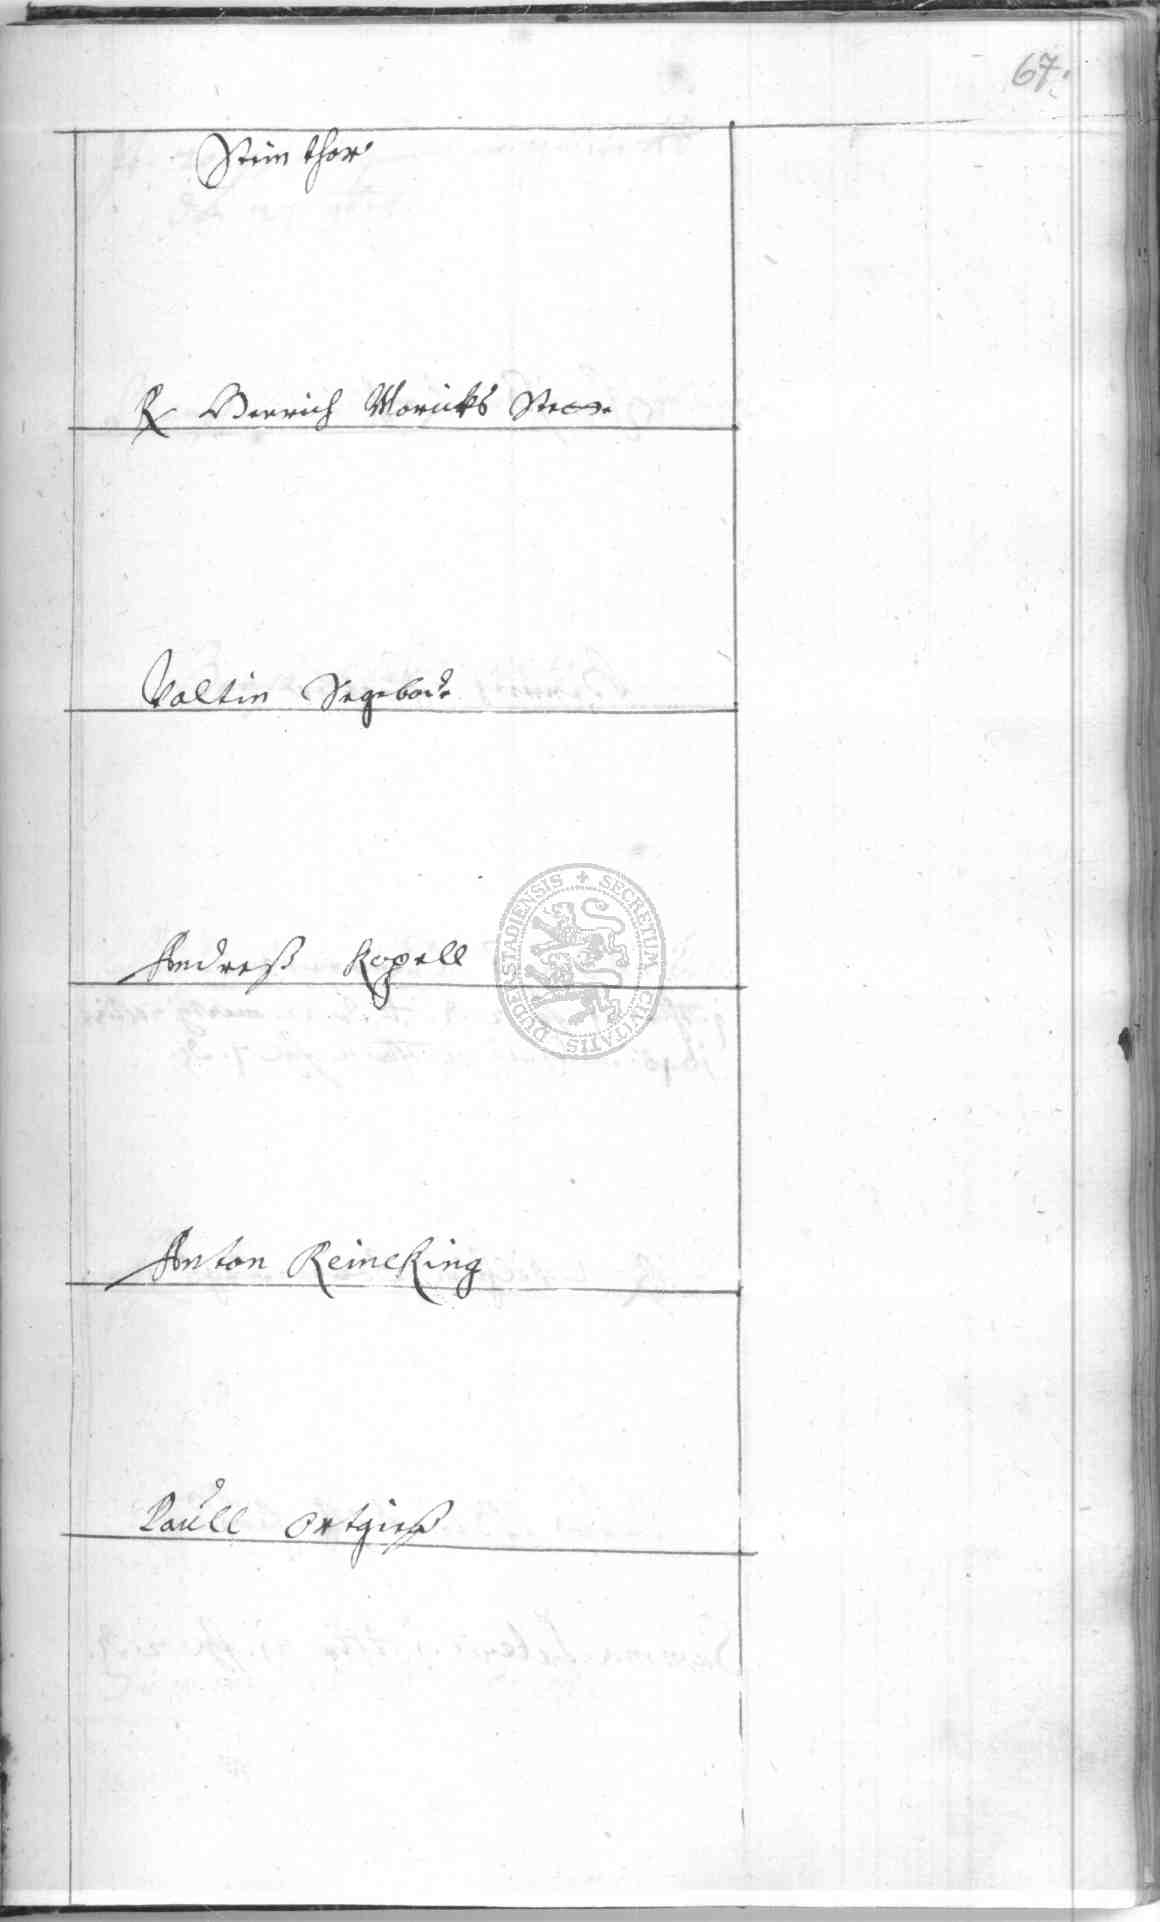 67.
Stein thor
R Henrich Moricks
Valtin Segebode
Andreß Kopell
Anton Reincking
Paull Ortgieß
SECRETUM CIVITATIS DUDERSTADIENSIS